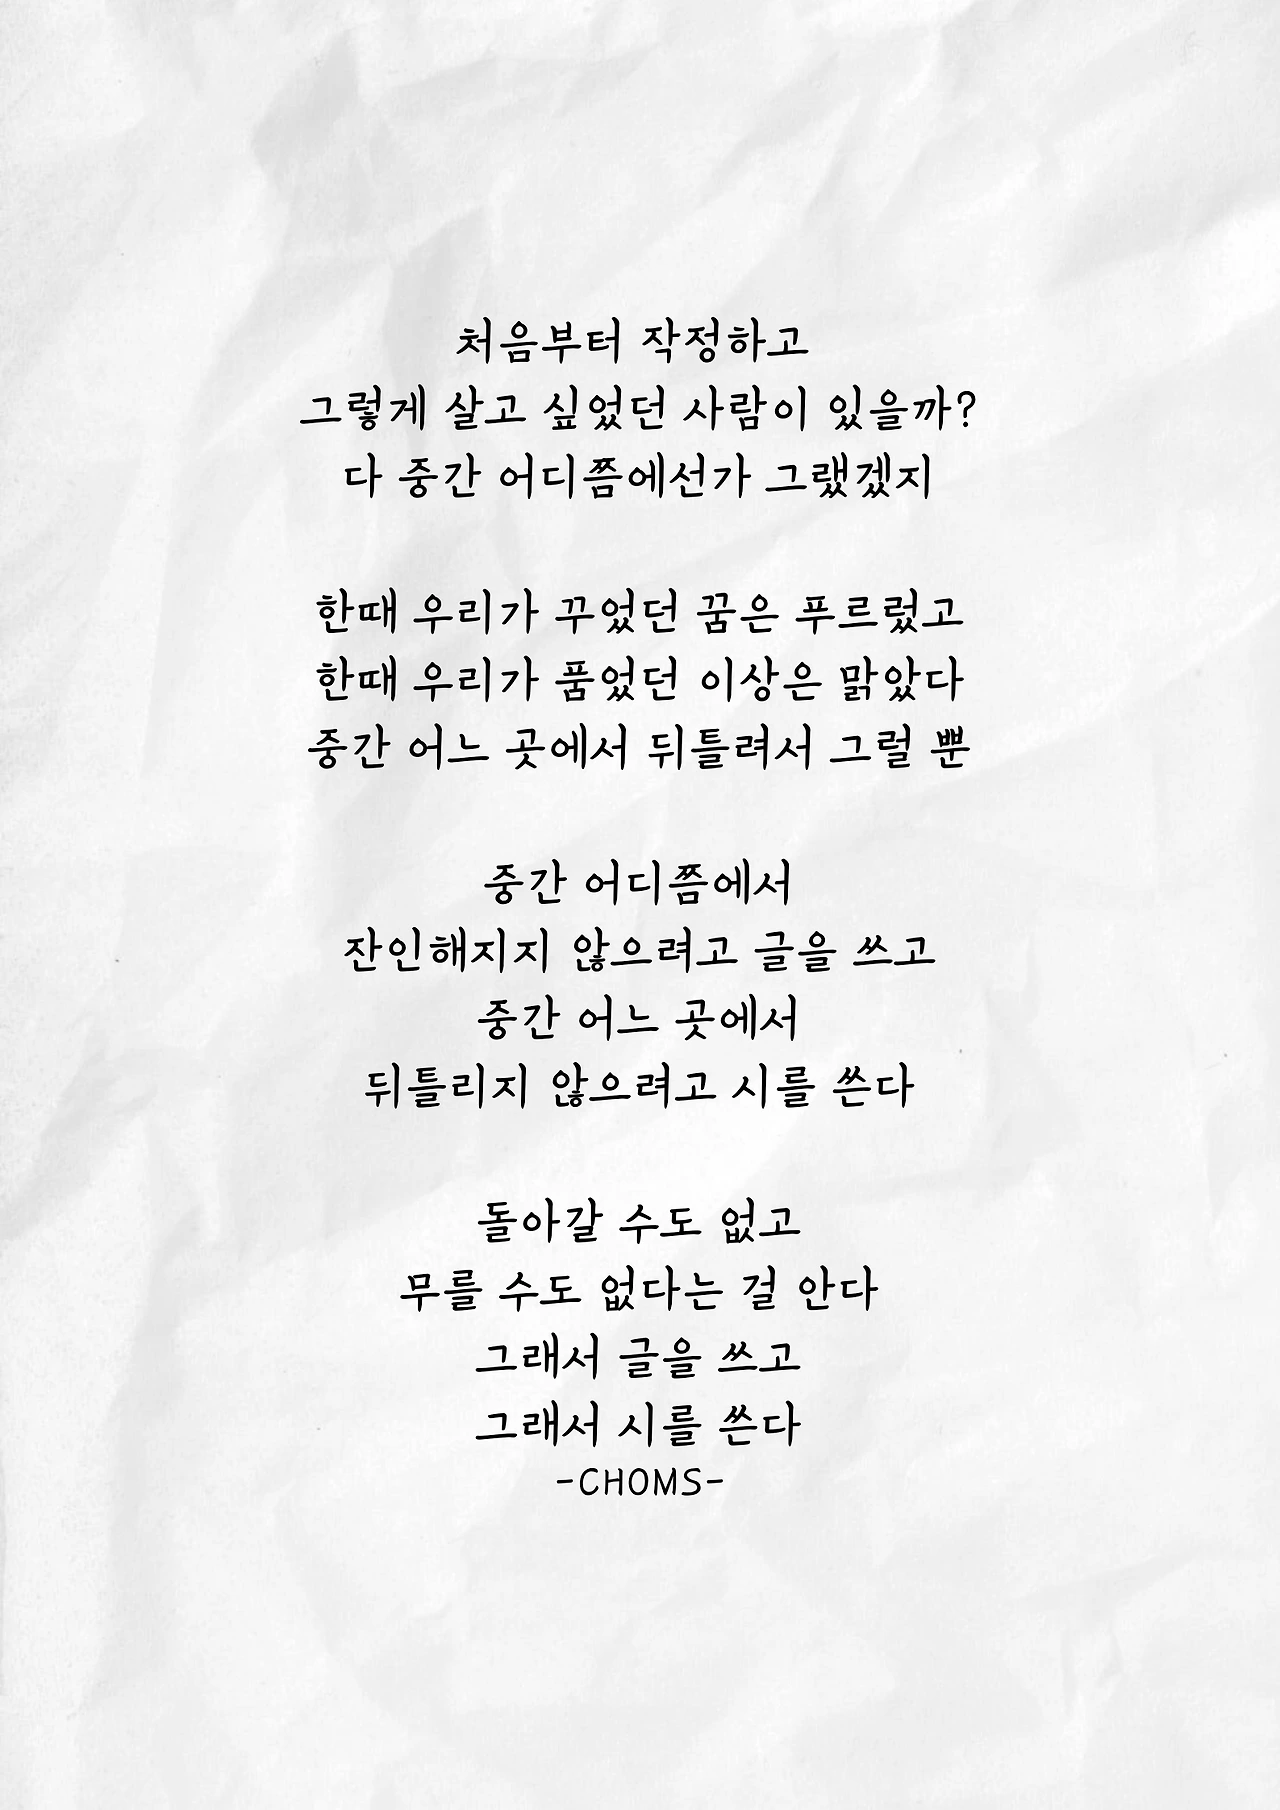 처음부터 작정하고
그렇게 살고 싶었던 사람이 있을까?
다 중간 어디쯤에선가 그랬겠지
한때 우리가 꾸었던 꿈은 푸르렀고
한때 우리가 품었던 이상은 맑았다
중간 어느 곳에서 뒤틀려서 그럴 뿐
중간 어디쯤에서
잔인해지지 않으려고 글을 쓰고
중간 어느 곳에서
뒤틀리지 않으려고 시를 쓴다
돌아갈 수도 없고
무를 수도 없다는 걸 안다
그래서 글을 쓰고
그래서 시를 쓴다
-CHOMS-